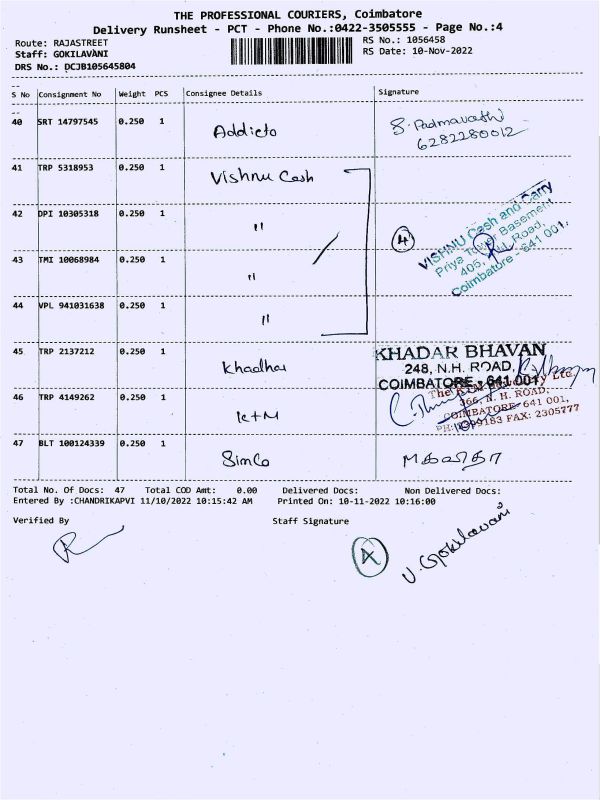 THE PROFESSIONAL COURIERS, Coimbatore
Delivery Runsheet - PCT - Phone No.:0422-3505555 - Page No.:4
Route: RAJASTREET RS No.: 1056458
Staff: GOKILAVANI RS Date: 10-Nov-2022
DRS No.: DCJB105645804
S No Consignment No Weight PCS Consignee Details Signature
40 SRT 14797545 0.250 1 Addicto S. Padmavathi
6282280012
41 TRP 5318953 0.250 1 Vishnu Cash
42 DPI 10305318 0.250 1 "
43 TMI 10068984 0.250 1 "
44 VPL 941031638 0.250 1 "
4
VISHNU Cash and Carry
Priya Tower Basement
405, Road,
Coimbatore - 641 001.
45 TRP 2137212 0.250 1 Khadhar
KHADAR BHAVAN
248, N.H. ROAD,
COIMBATORE - 641 001
46 TRP 4149262 0.250 1 K+M
The Ltd.
366, N. H. ROAD,
COIMBATORE-641 001,
FAX: 2305777
47 BLT 100124339 0.250 1 Simco
Total No. Of Docs: 47 Total COD Amt: 0.00 Delivered Docs: Non Delivered Docs:
Entered By :CHANDRIKAPVI 11/10/2022 10:15:42 AM Printed On: 10-11-2022 10:16:00
Verified By Staff Signature
A
V. Gokilavani